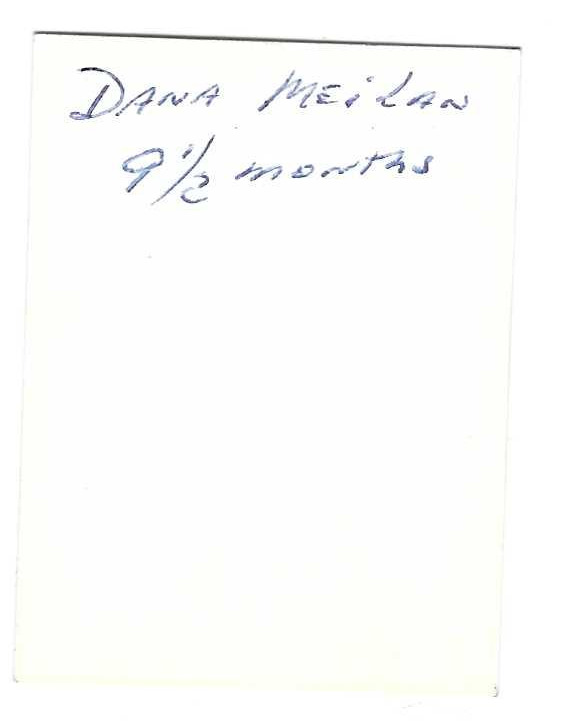 DANA MEiLAN
9 1/2 months